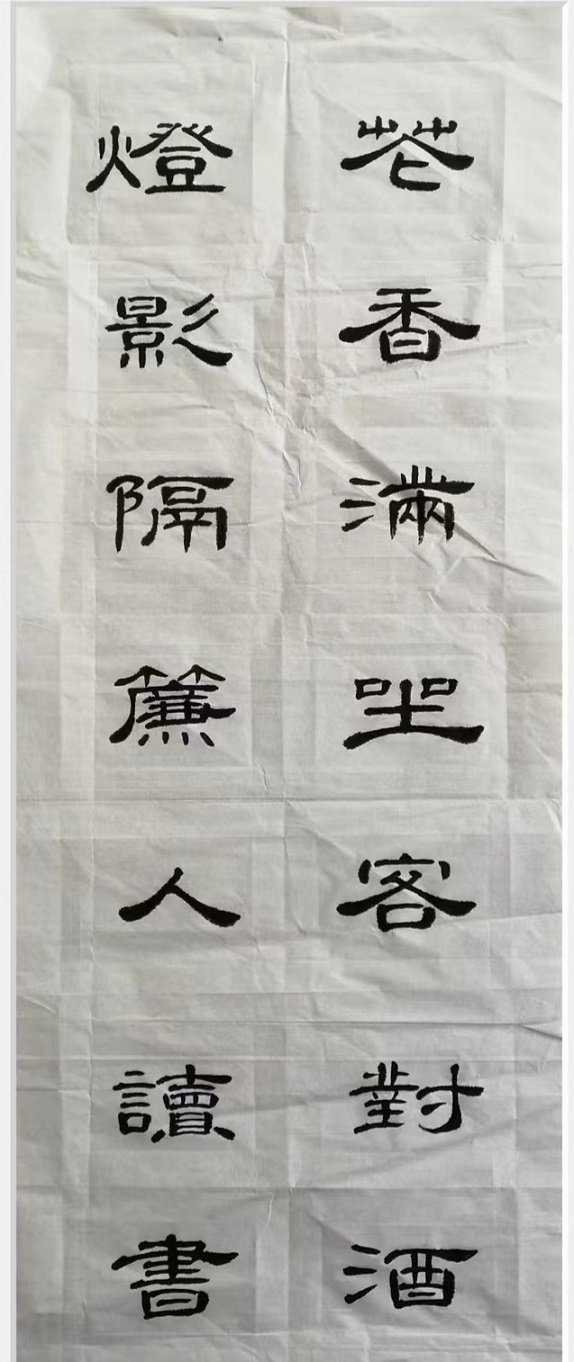 花香滿坐客對酒
燈影隔簾人讀書